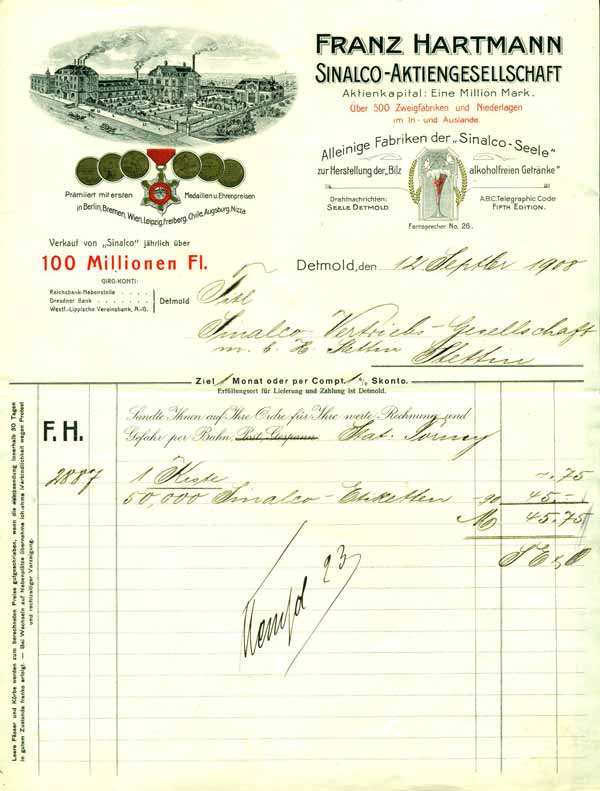 FRANZ HARTMANN
SINALCO-AKTIENGESELLSCHAFT
Aktienkapital: Eine Million Mark.
Über 500 Zweigfabriken und Niederlagen
im In- und Auslande.
Alleinige Fabriken der „Sinalco-Seele"
zur Herstellung der „Bilz alkoholfreien Getränke"
Drahtnachrichten:
SEELE DETMOLD
A.B.C. Telegraphic Code
FIFTH EDITION.
Fernsprecher No. 26.
Prämiiert mit ersten Medaillen u. Ehrenpreisen
in Berlin, Bremen, Wien, Leipzig, Freiberg, Chile, Augsburg, Nizza
Verkauf von „Sinalco" jährlich über
100 Millionen Fl.
GIRO-KONTI:
Reichsbank-Nebenstelle . . . .
Dresdner Bank . . . . . . .
Westf.-Lippische Vereinsbank, A.-G.
Detmold
Detmold, den 12 Septber 1908
Sinalco Vertriebs-Gesellschaft
m. b. H. Stettin
Stettin
Ziel 1 Monat oder per Compt. 1% Skonto.
Erfüllungsort für Lieferung und Zahlung ist Detmold.
F. H.
Sandte Ihnen auf Ihre Ordre für Ihre werte Rechnung und
Gefahr per Bahn, Post, Gespann
2887 1 Kiste -.75
50,000 Sinalco-Etiketten -90 45.-
M 45.75
S. E. & O
23
Leere Fässer und Körbe werden zum berechneten Preise gutgeschrieben, wenn die Rücksendung innerhalb 30 Tagen
in gutem Zustande franko erfolgt. — Bei Wechseln auf Nebenplätze übernehme ich ohne Verbindlichkeit wegen Protest
und rechtzeitiger Vorzeigung.